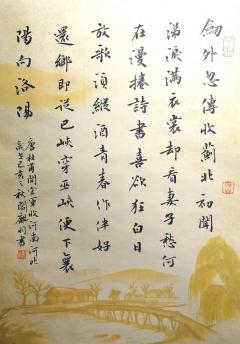 劍外忽傳收薊北初聞
涕淚滿衣裳却看妻子愁何
在漫捲詩書喜欲狂白日
放歌須縱酒青春作伴好
還鄉即從巴峽穿巫峽便下襄
陽向洛陽
唐杜甫聞官軍收河南河北
歲在己亥之秋書